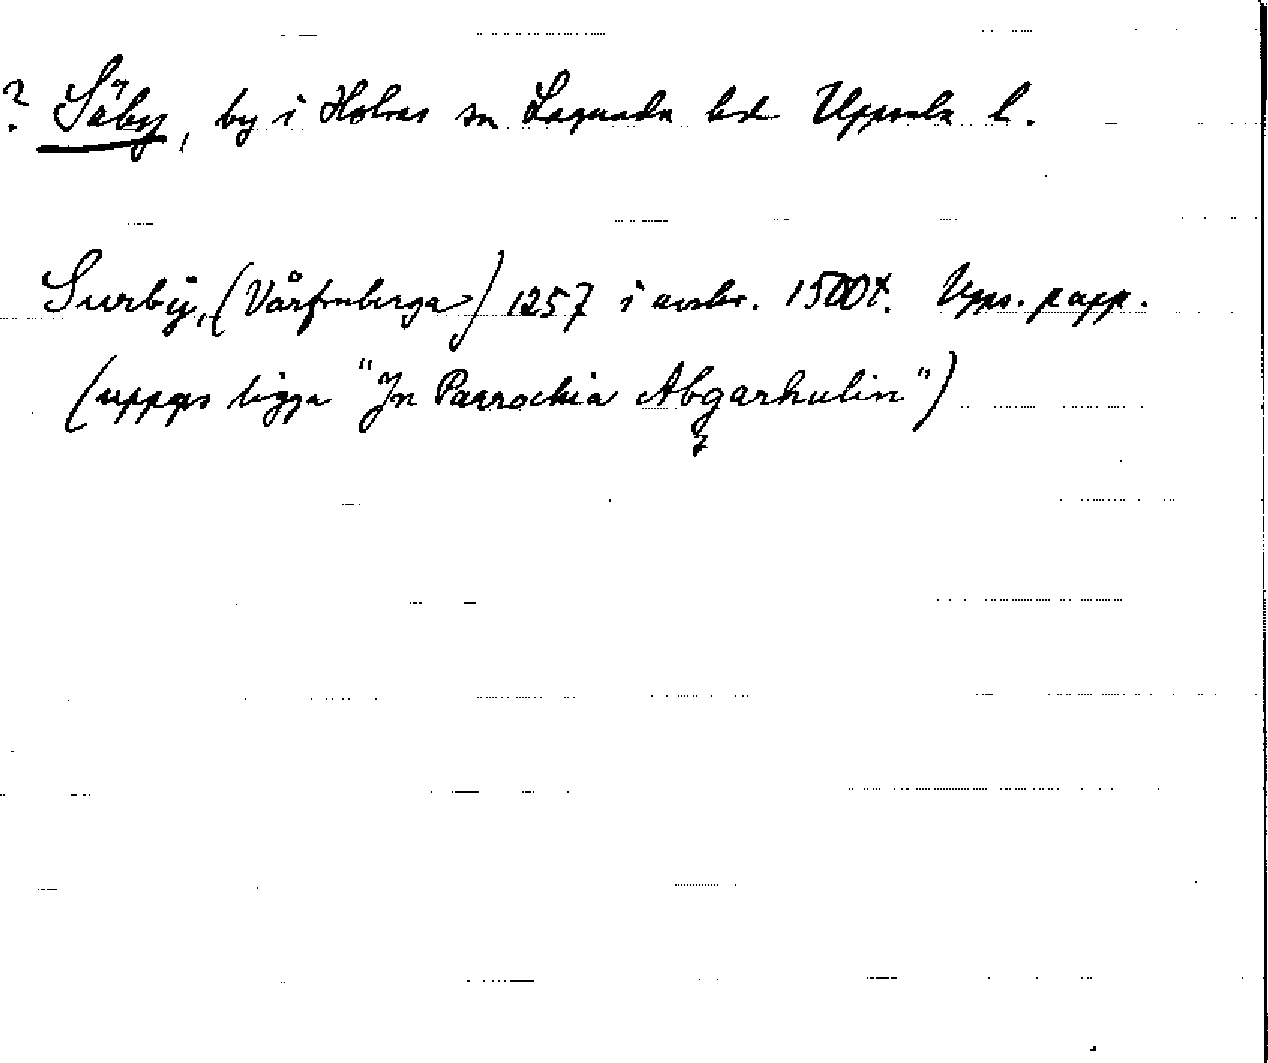 ? Säby, by i Holms sn Lagunda hd Uppsala l.
Surby, (Vårfruberga) 1257 i avskr. 1500t. Upps. papp.
(uppges ligga "In Parrochia Abgarhulin")
?